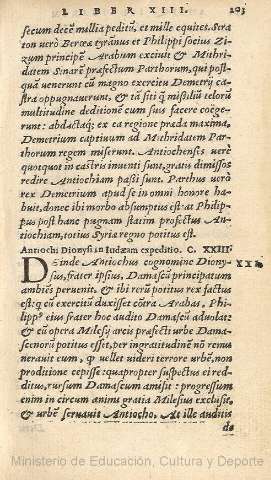 LIBER XIII. 203
secum decē millia peditū, et mille equites. Stra
ton uerò Berœæ tyrānus et Philippi socius Zi
zum principē Arabum exciuit & Mithri
datem Sinarē præfectum Parthorum, qui post
quā uenerunt cū magno exercitu Demetrij ca
stra oppugnauerunt, & tā siti q̃ missiliū telorū
multitudine deditionem cum suis facere coëge-
runt: abdactaq; ex ea regione præda maxima,
Demetrium captiuum ad Mithridatem Par-
thorum regem miserunt. Antiochensis uerè
quotquot in castris inuenti sunt, gratis dimissos
redire Antiochiam passi sunt. Parthus uerò
rex Demetrium apud se in omni honore ha-
buit, donec ibi morbo absumptus est: at Philip-
pus post hanc pugnam statim profectus An-
tiochiam, totius Syria regno potitus est.
Antiochi Dionysij in Iudæam expeditio. C. XXIII.
DEinde Antiochus cognomine Diony- XXI
sius, frater ipsius, Damascū principatum
ambiēs peruenit, & ibi rerū potitus rex factus
est: q̃ cū exercitū duxisset cōtra Arabas, Phi-
lippꝰ eius frater hoc audito Damascū aduolat:
& cū opera Milesij arcis præfecti urbe Dama-
scenorū potitus esset, per ingratitudinē nō remu
nerauit eum, q̃ uellet uideri terrore urbē, non
proditione cepisse: quapropter suspectus ei red-
ditus, rursum Damascum amisit: progressum
enim in circum animi gratia Milesius exclusit,
& urbē seruauit Antiocho. At ille auditis
de
Ministerio de Educación, Cultura y Deporte